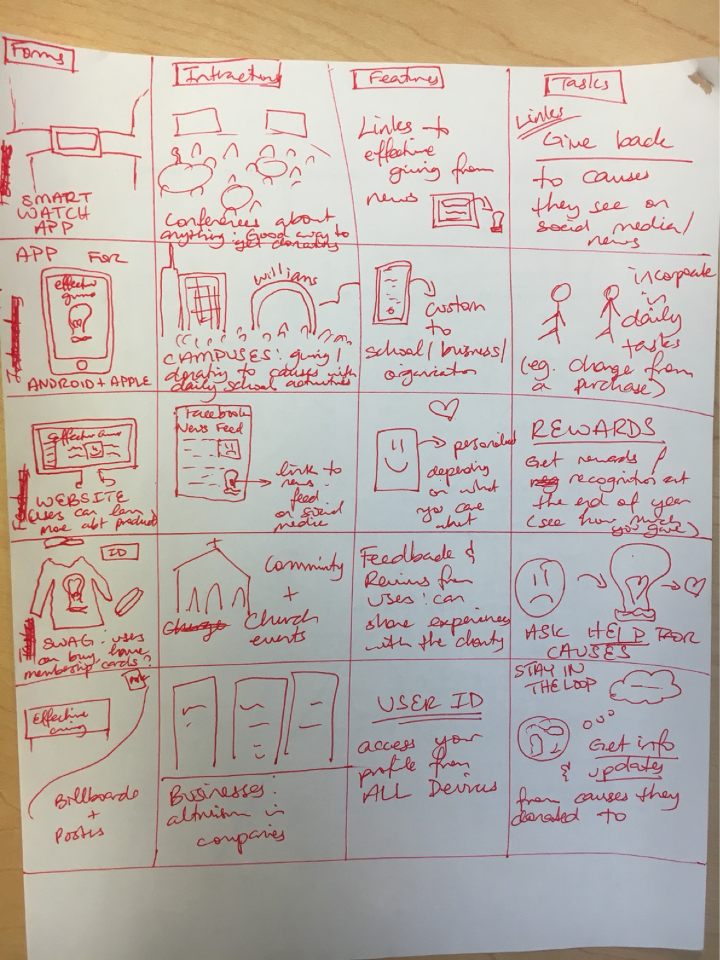 Forms
SMART
WATCH
APP
Interactions
Conferences about
anything: Good way to
get donating
Features
Links to
effective
giving from
news
Tasks
Links
Give back
to causes
they see on
social media/
news
APP FOR
effective
giving
ANDROID + APPLE
Williams
CAMPUSES: giving/
donating to causes with
daily school activities
custom
to
school/business/
organization
incorporate
in
daily
tasks
(eg. change from
a purchase)
Effective Giving
WEBSITE
(users can learn
more abt product)
Facebook
News Feed
link to
news
feed
on social
media
personalized
depending
on what
you care
about
REWARDS
Get rewards/
recognition at
the end of year
(see how much
you gave)
ID
SWAG: users
can buy, have
membership cards?
Community
+
Church
events
Feedback &
Reviews from
users: can
share experiences
with the charity
ASK HELP FOR
CAUSES
Effective
Giving
Billboards
+
Posters
Businesses:
altruism in
companies
USER ID
access your
profile from
ALL Devices
STAY IN
THE LOOP
Get info
& updates
from causes they
donated to